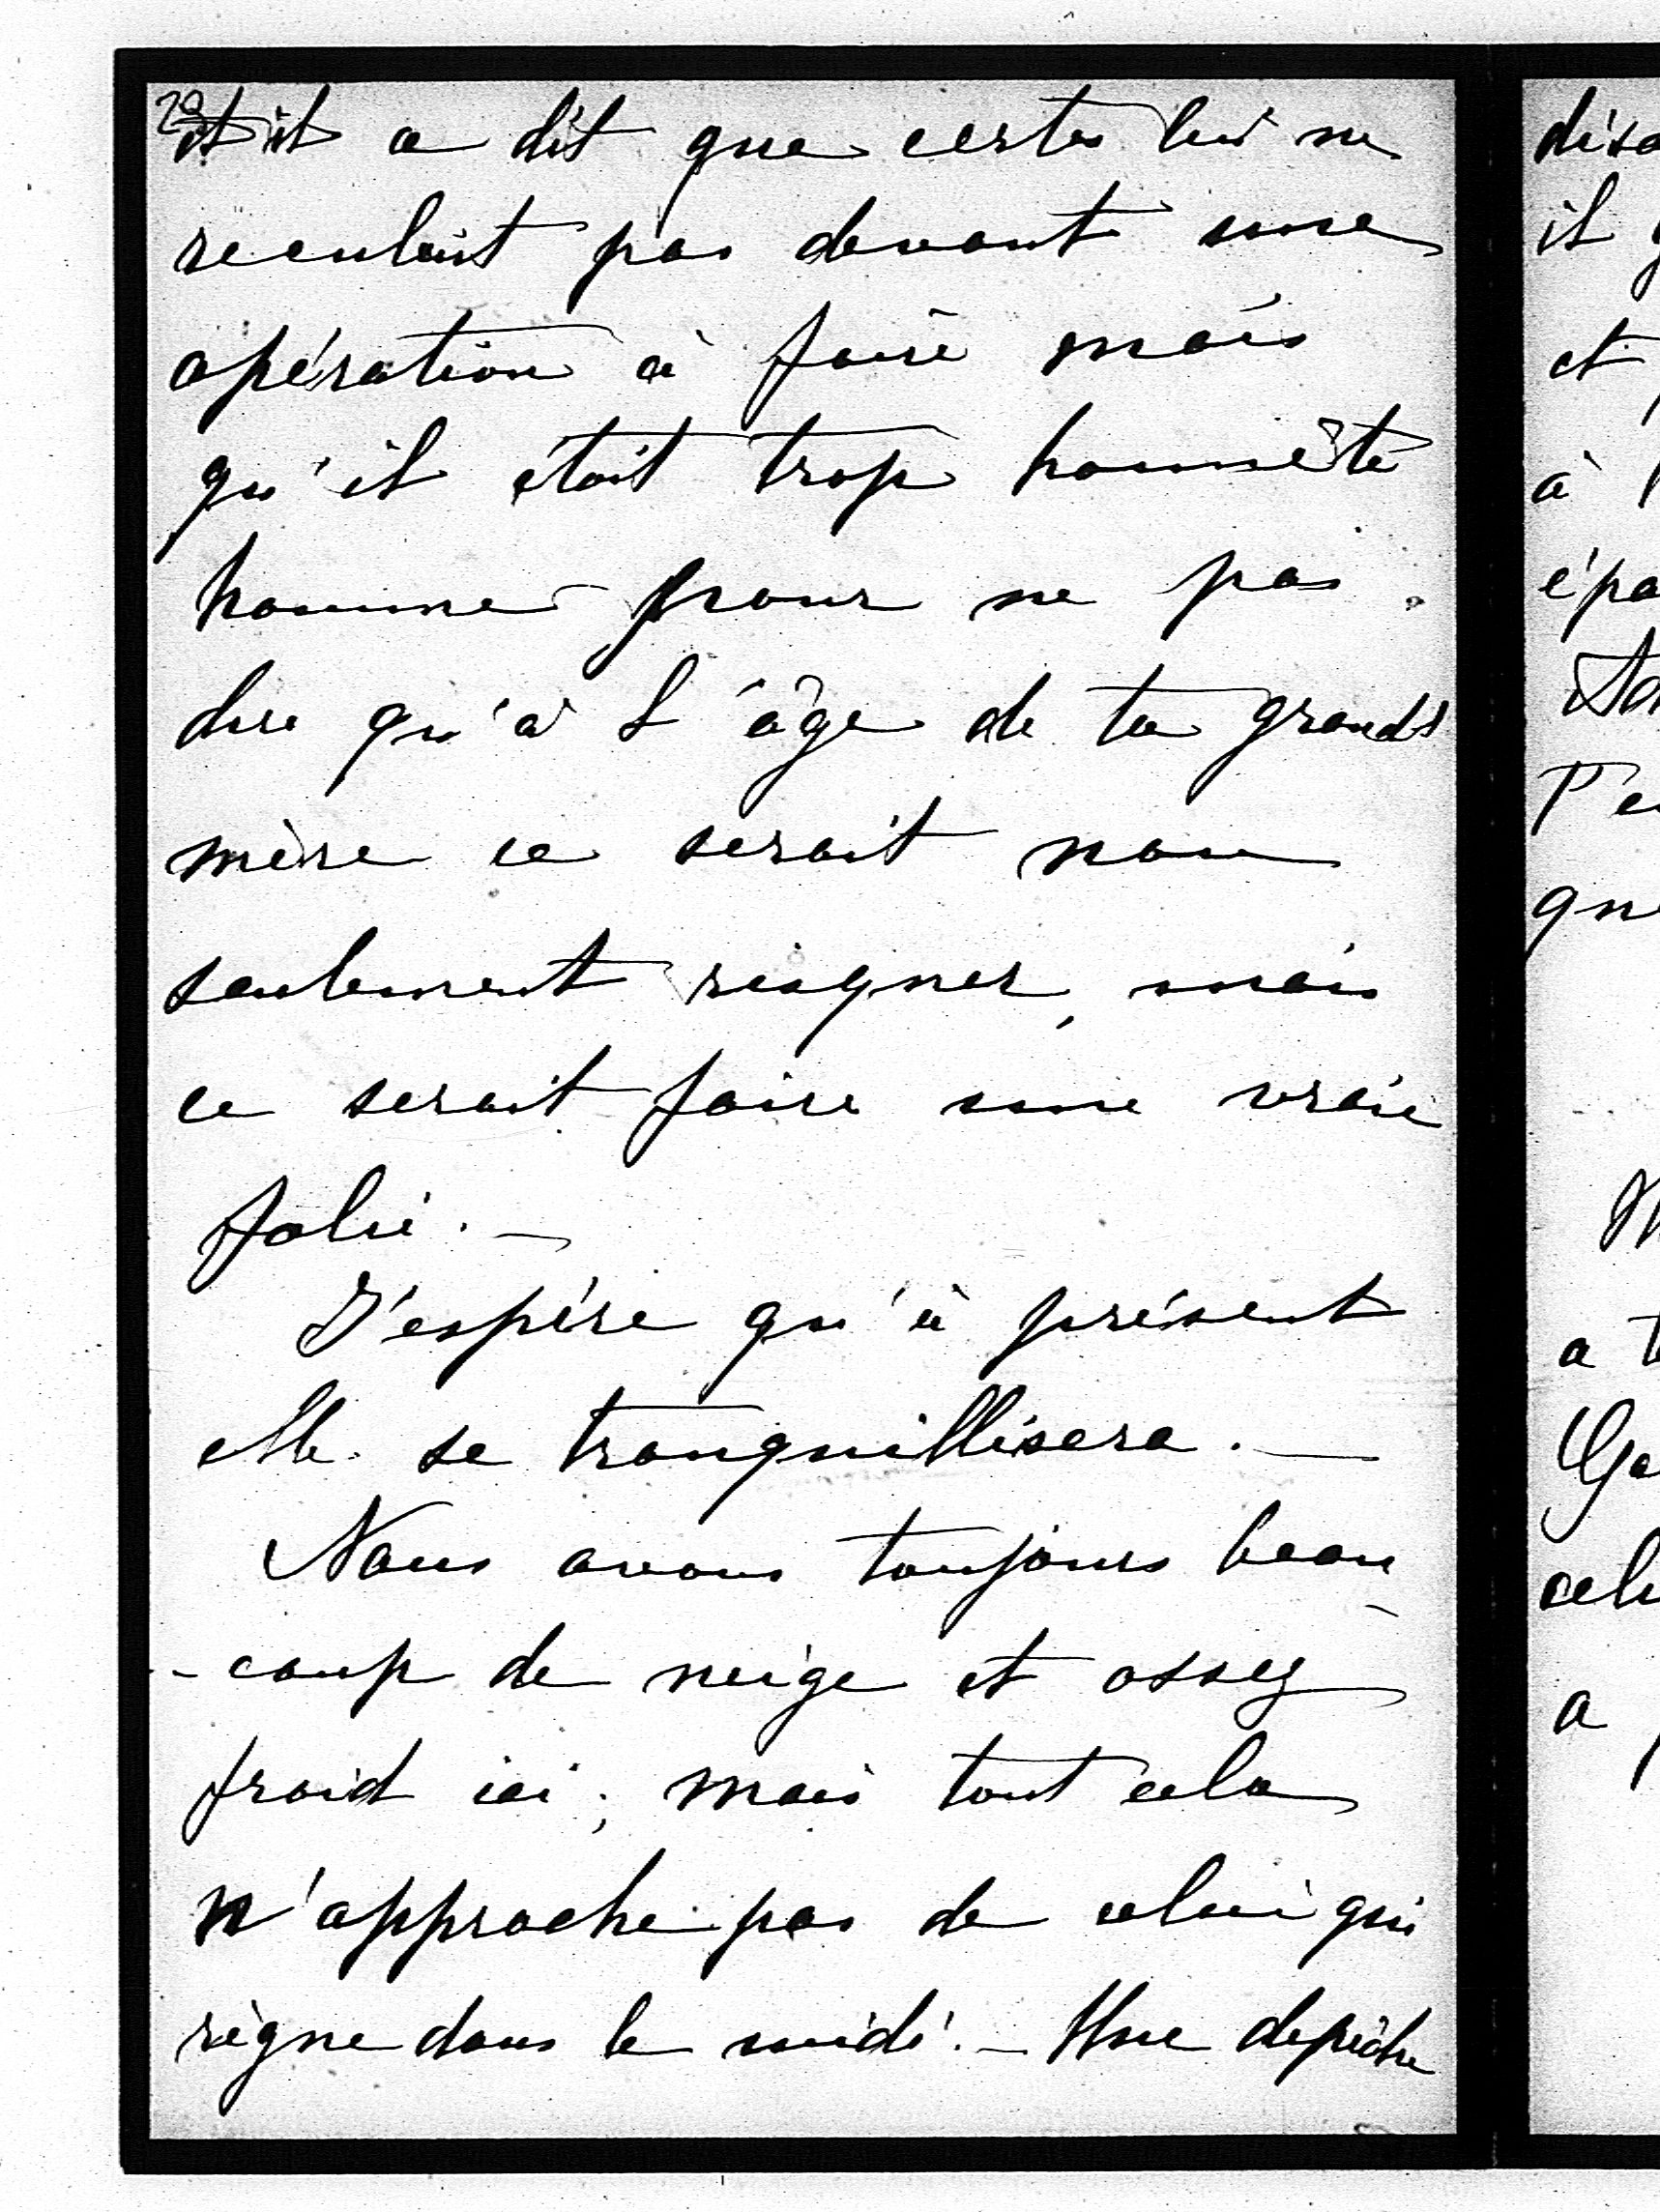 29
et il a dit que certes lui ne
reculait pas devant une
opération à faire mais
qu'il était trop honnête
homme pour ne pas
dire qu'à l'âge de ta grand
mère ce serait non
seulement risquer, mais
ce serait faire une vraie
folie. —
J'espère qu'à présent
elle se tranquillisera. —
Nous avons toujours beau-
-coup de neige et assez
froid ici; mais tout cela
n'approche pas de celui qui
règne dans le midi. — Une dépêche
disa
il
et
à
épa
que
a
celu
a